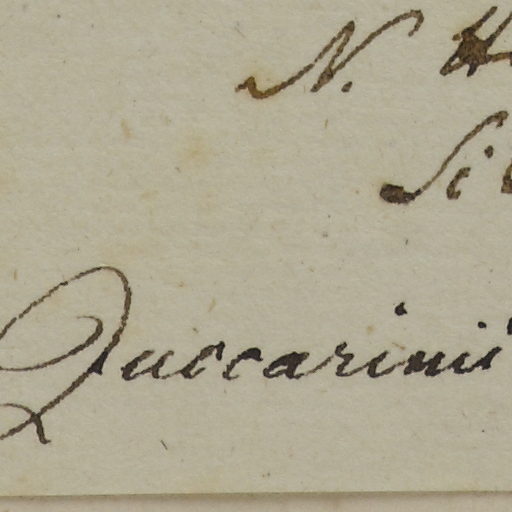 N. H
Si
Zuccarinii